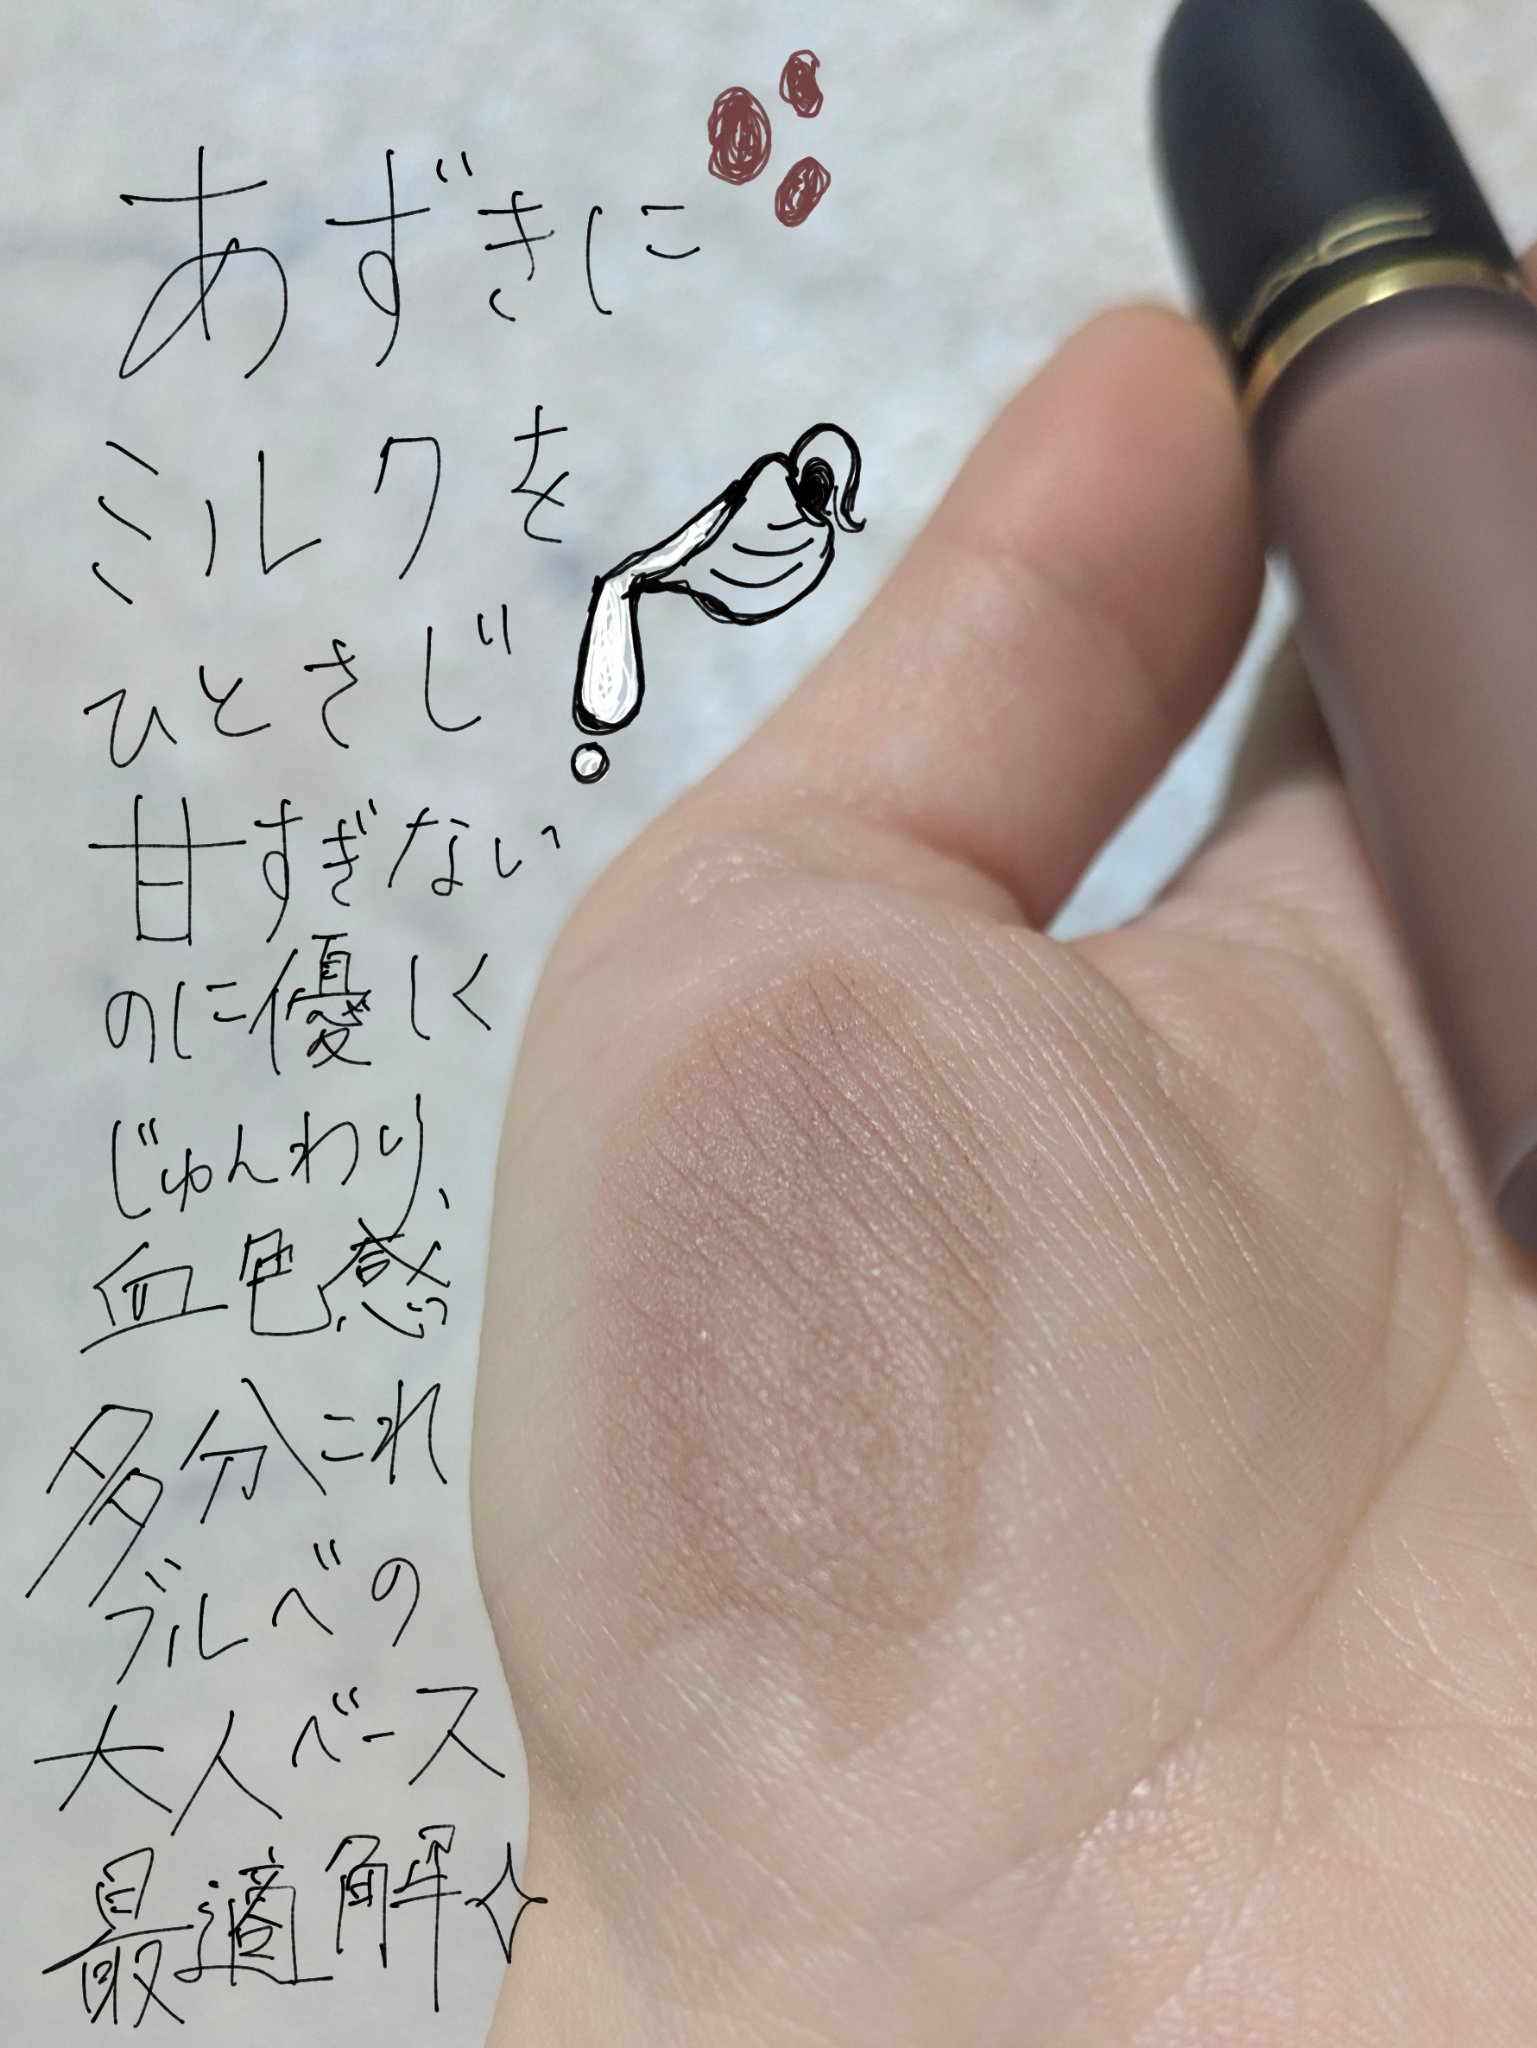 あずきに
ミルクを
ひとさじ
甘すぎない
のに優しく
じゅんわり、
血色感
多分これ
ブルベの
大人ベース
最適解